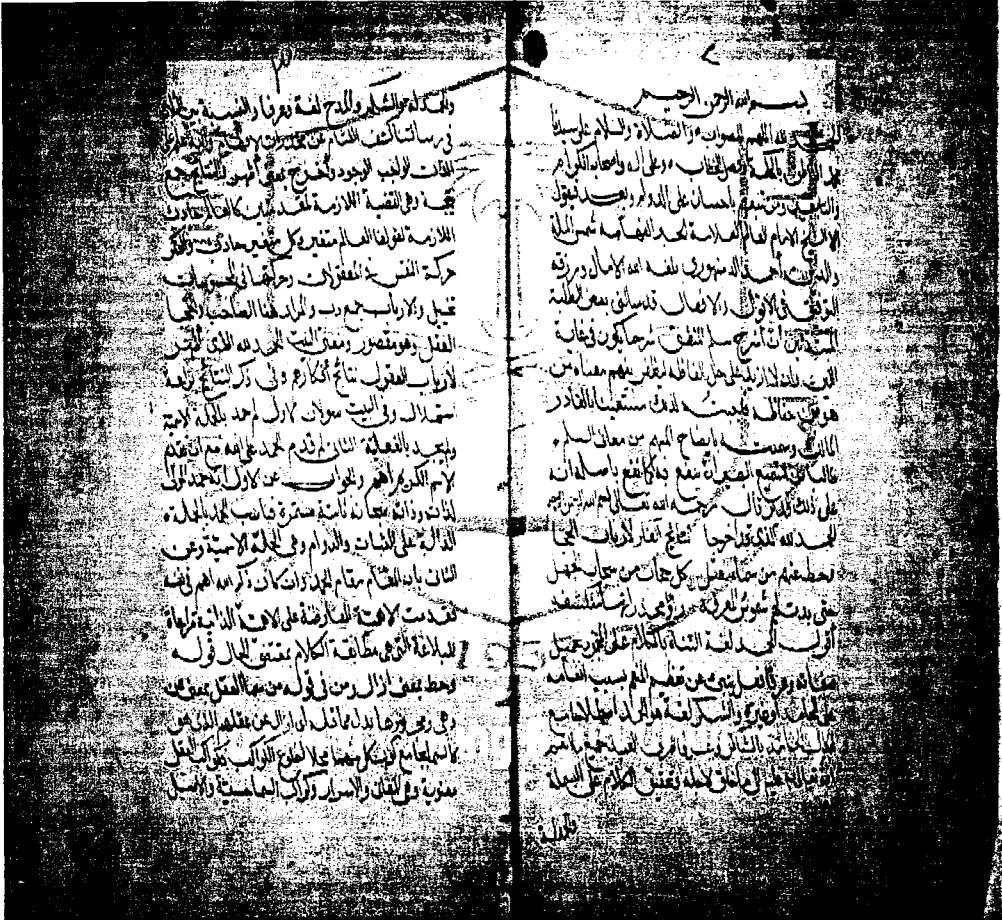 بسم الله الرحمن الرحيم
الحمد لله الملهم للصواب والصلاة والسلام على سيدنا
محمد بالحكمة وفصل الخطاب وعلى آله وأصحابه الكرام
والتابعين ومن تبعهم باحسان على الدوام وبعد فيقول
الشيخ الامام العالم العلامة الحبر الفهامة شمس الملة
والدين الشيخ أحمد الدمنهوري بلغه الله الامال ورزقه
التوفيق في الاقوال والافعال قد سألني بعض الطلبة
المبتدئين أن أشرح سلم المنطق شرحا يكون في غاية
اللين وأن لا ازيد على حل الفاظه ليظفر بفهم معناه من
هو من خفاف فاجبت لذلك مستعينا بالقادر
المالك وسميته ايضاح المبهم من معاني السلم
طالبا من السميع البصير أن ينفع به كما نفع باصله انه
على ذلك قدير قال رحمه الله تعالى بسم الله الرحمن الرحيم
الحمد لله الذي قد أخرجا نتائج الفكر لأرباب الحجا
وحط عنهم من سماء العقل كل حجاب من سحاب الجهل
حتى بدت لهم شموس المعرفة رأوا مخدراتها منكشفة
أقول الحمد لغة الثناء بالكلام على الجميل
صفاته وعرفا فعل ينبئ عن تعظيم المنعم بسبب انعامه
على الحامد أو غيره والشكر لغة هو الحمد
العبد جميع ما أنعم
الله عليه فيما خلق لاجله وتحقيق الكلام على البسملة
والحمدلة
٣
والحمدلة والشكر والمدح لغة وعرفا والنسبة بين
في رسالتنا كشف اللثام عن مخدرات الافهام
الذات الواجب الوجود وأخرج بمعنى أظهر والنتائج جمع
نتيجة وهي القضية اللازمة لمقدمتين كالعالم حادث
اللازمة لقولنا العالم متغير وكل متغير حادث والفكر
حركة النفس في المعقولات وحركتها في المحسوسات
تخييل والارباب جمع رب والمراد هنا الصاحب والحجا
العقل وهو مقصور ومعنى البيت الحمد لله الذي أظهر
لارباب العقول نتائج أفكارهم وفي ذكر النتائج براعة
استهلال وفي البيت سؤلان الاول لم حمد بالجملة الاسمية
ولم يحمد بالفعلية الثاني لم قدم الحمد على الله مع أن تقديم
الاسم الكريم أهم والجواب عن الاول أنه حمد المولى
لذاته وذاته سبحانه ثابتة مستمرة فناسب الحمد بالجملة
الدالة على الثبات والدوام وهي الجملة الاسمية وعن
الثاني بان المقام مقام الحمد وان كان ذكر الله أهم في نفسه
فقدمت الاهمية العارضة على الاهمية الذاتية مراعاة
للبلاغة التي هي مطابقة الكلام لمقتضى الحال قوله
وحط بمعنى أزال ومن في قوله من سما العقل بمعنى عن
وهي ومجرورها بدل مما قبله أي أزال عن عقلهم الذي هو
كالسماء بجامع كون كل منهما محلا لطلوع الكواكب فكواكب العقل
معنوية وهي المعاني والاسرار وكواكب السما حسية والاصل